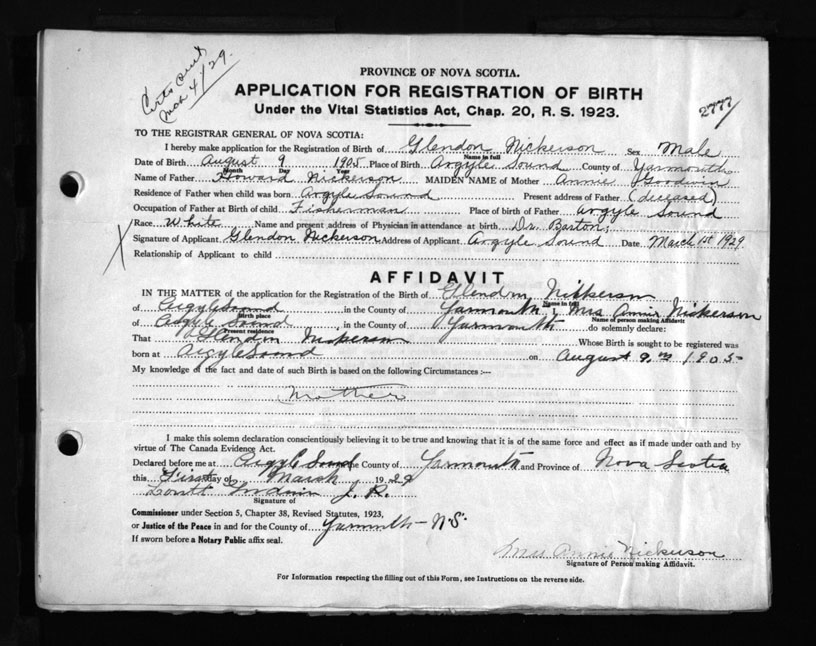 Certs Sent
Mch 4/29.
PROVINCE OF NOVA SCOTIA.
APPLICATION FOR REGISTRATION OF BIRTH
Under the Vital Statistics Act, Chap. 20, R. S. 1923.
2777
TO THE REGISTRAR GENERAL OF NOVA SCOTIA:
I hereby make application for the Registration of Birth of Glendon Nickerson Sex Male
Name in full
Date of Birth August 9 1905 Place of Birth Argyle Sound County of Yarmouth
Month Day Year
Name of Father Howard Nickerson MAIDEN NAME of Mother Annie Goodwin
Residence of Father when child was born Argyle Sound Present address of Father (deceased)
Occupation of Father at Birth of child Fisherman Place of birth of Father Argyle Sound
Race White Name and present address of Physician in attendance at birth Dr. Barton;
Signature of Applicant Glendon Nickerson Address of Applicant Argyle Sound Date March 1st 1929
Relationship of Applicant to child
AFFIDAVIT
IN THE MATTER of the application for the Registration of the Birth of Glendon Nickerson
Name in full
of Argyle Sound in the County of Yarmouth, I Mrs Annie Nickerson
Birth place Name of person making Affidavit
of Argyle Sound in the County of Yarmouth do solemnly declare:
Present residence
That Glendon Nickerson Whose Birth is sought to be registered was
born at Argyle Sound on August 9th 1905
My knowledge of the fact and date of such Birth is based on the following Circumstances :—
Mother
I make this solemn declaration conscientiously believing it to be true and knowing that it is of the same force and effect as if made under oath and by
virtue of The Canada Evidence Act.
Declared before me at Argyle Sound the County of Yarmouth and Province of Nova Scotia
this First day of March 1929
J. P.
Signature of
Commissioner under Section 5, Chapter 38, Revised Statutes, 1923,
or Justice of the Peace in and for the County of Yarmouth - N.S.
If sworn before a Notary Public affix seal.
Mrs Annie Nickerson
Signature of Person making Affidavit.
For Information respecting the filling out of this Form, see Instructions on the reverse side.